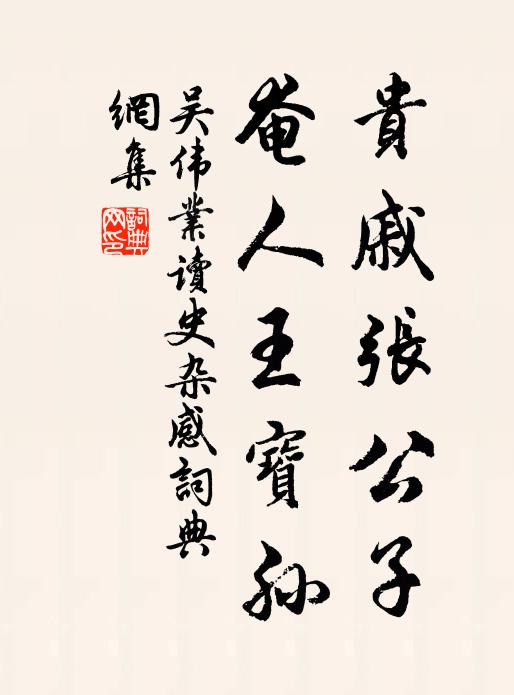 貴戚張公子
奄人王寶孫
吴伟業讀史杂感詞典
網集
詞典网印